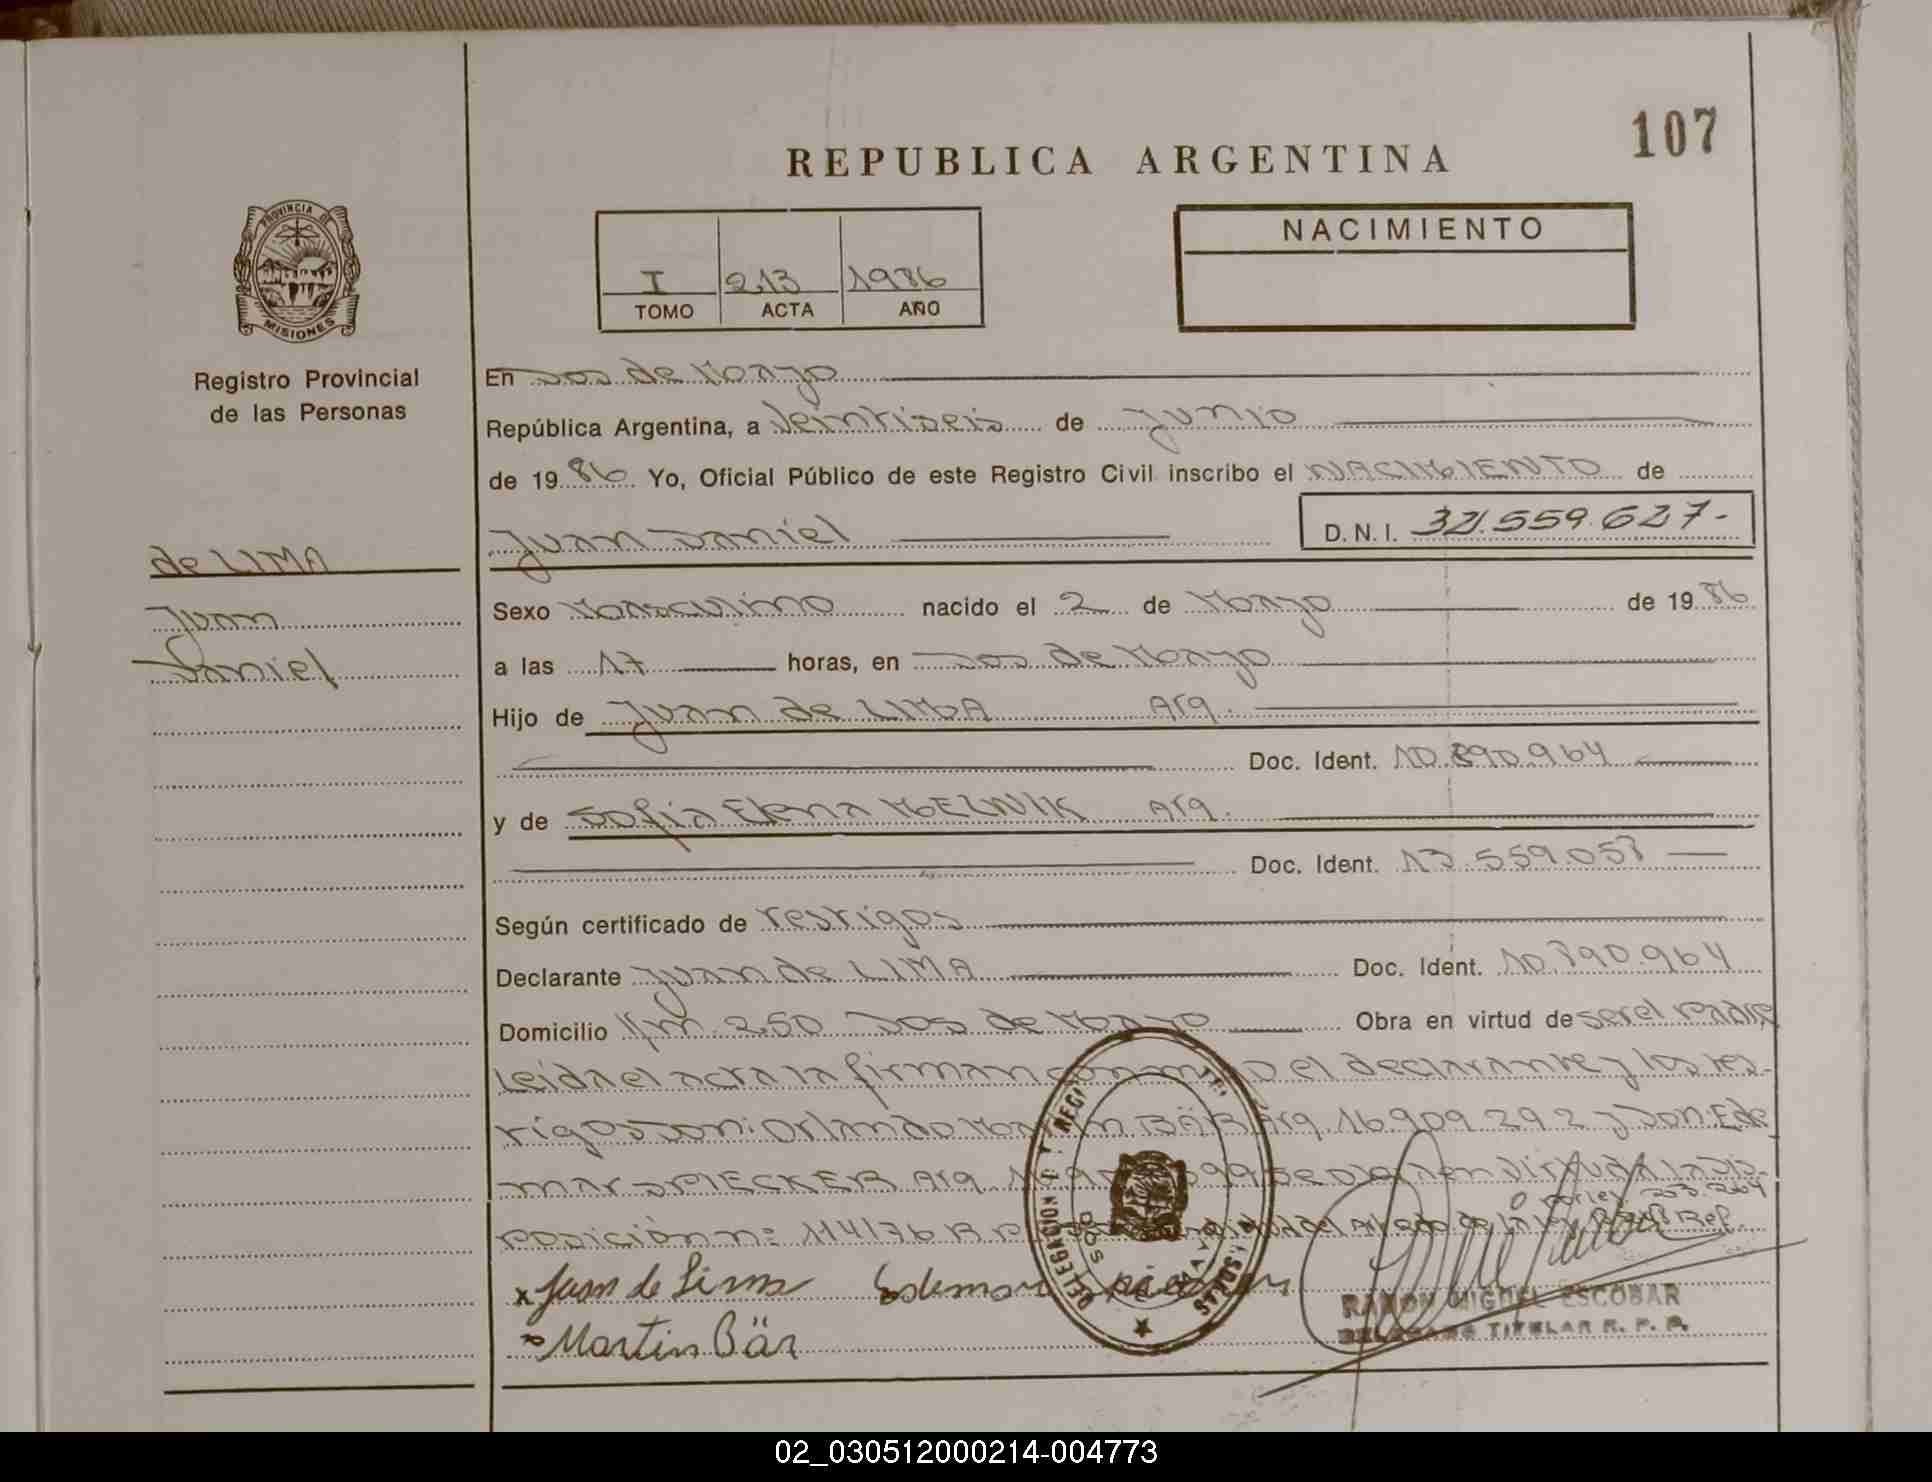 107
REPUBLICA ARGENTINA
I 213 1986
TOMO ACTA AÑO
NACIMIENTO
PROVINCIA DE
MISIONES
Registro Provincial
de las Personas
de LIMA
Juan
Daniel
En Dos de Mayo
República Argentina, a Veintiseis de Junio
de 19 86 Yo, Oficial Público de este Registro Civil inscribo el NACIMIENTO de
Juan Daniel D.N.I. 32.559.627-
Sexo Masculino nacido el 2 de Mayo de 19 86
a las 17 horas, en Dos de Mayo
Hijo de Juan de LIMA Arg.
Doc. Ident. 10.890.964
y de Sofia Elena MEZNIK Arg.
Doc. Ident. 13.559.053
Según certificado de testigos
Declarante Juan de LIMA Doc. Ident. 10.890.964
Domicilio Km 250 Dos de Mayo Obra en virtud de ser el padre
Leida el acta la firman conmigo el declarante y los tes-
tigos Don: Orlando Martin BÄR Arg. 16.909.292 y Don. Ede
mar SPIECKER Arg. en virtud a la Dis-
posición n: 114/76 R
por ley 23.264
x Juan de Lima Edemar
Martin Bär
DELEGACION
DOS
RAMON MIGUEL ESCOBAR
DELEGADO TITULAR R. P. P.
02_030512000214-004773